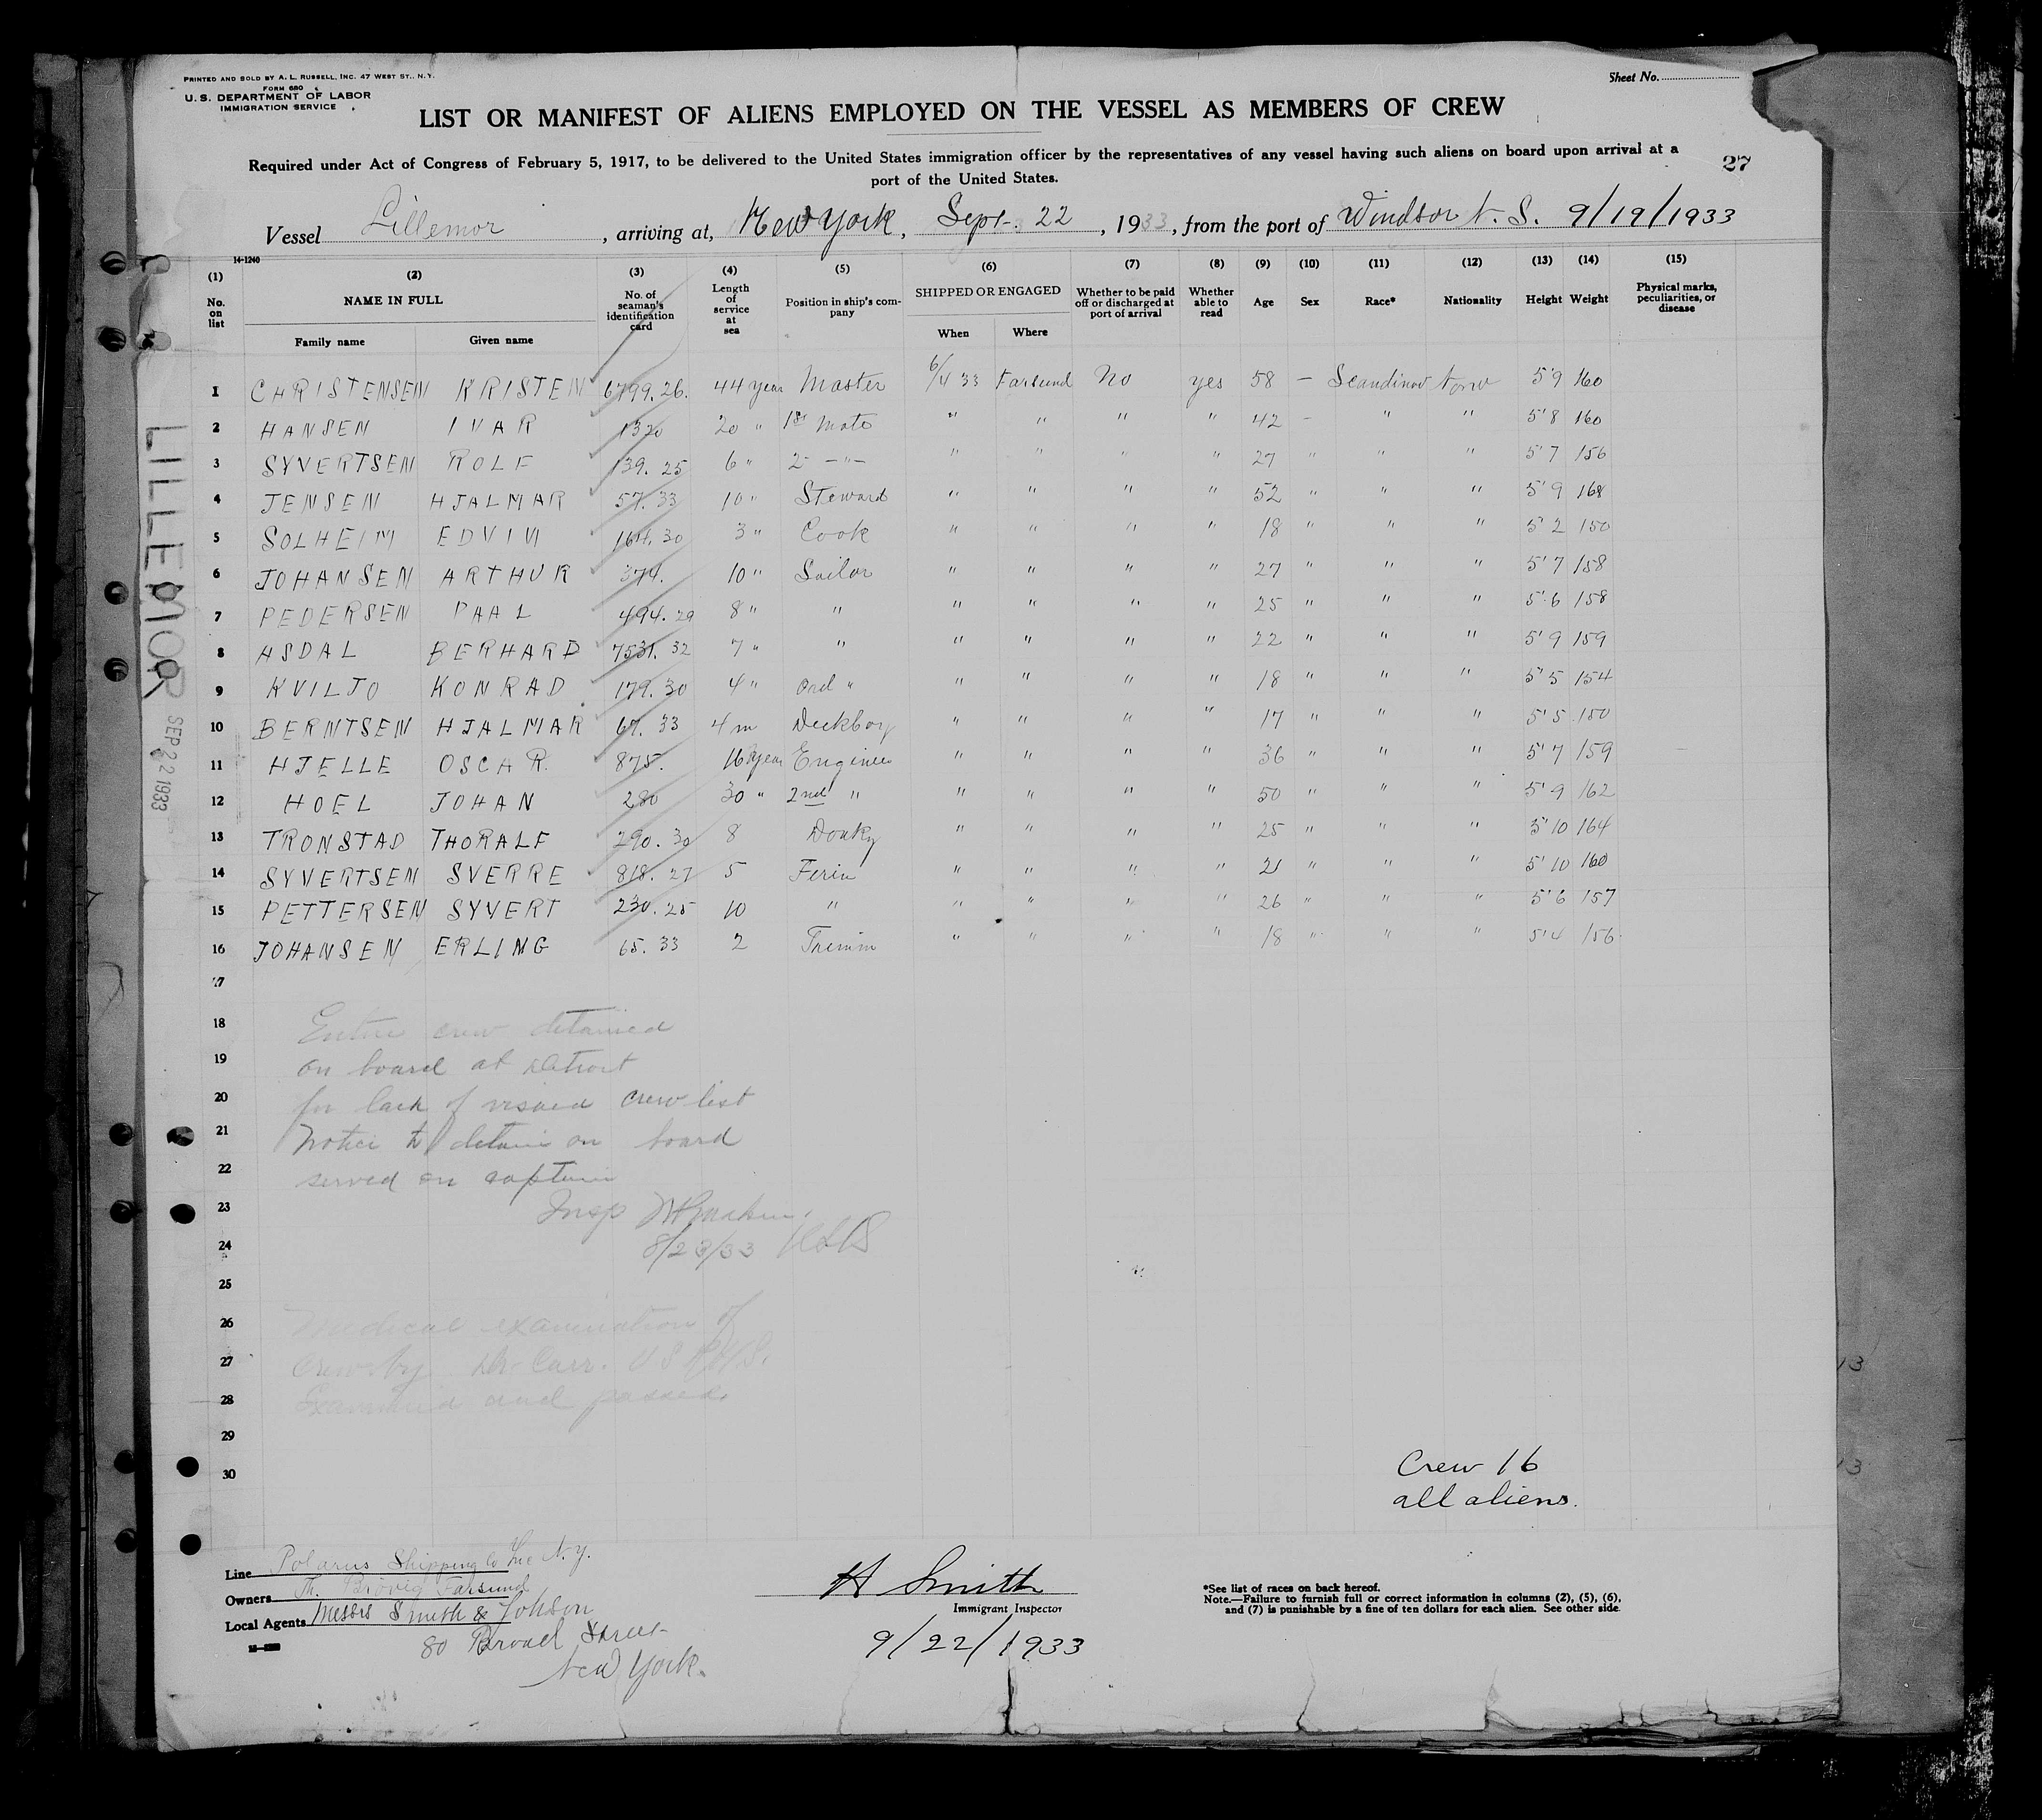 PRINTED AND SOLD BY A. L. RUSSELL, INC. 47 WEST ST., N.Y.
FORM 680
U. S. DEPARTMENT OF LABOR
IMMIGRATION SERVICE
Sheet No.
LIST OR MANIFEST OF ALIENS EMPLOYED ON THE VESSEL AS MEMBERS OF CREW
Required under Act of Congress of February 5, 1917, to be delivered to the United States immigration officer by the representatives of any vessel having such aliens on board upon arrival at a
port of the United States.
27
Vessel Lillemor, arriving at, New York, Sept. 22, 1933, from the port of Windsor N. S. 9/19/1933
14-1240
(1) (2) (3) (4) (5) (6) (7) (8) (9) (10) (11) (12) (13) (14) (15)
No. on list NAME IN FULL Family name Given name No. of seaman's identification card Length of service at sea Position in ship's company SHIPPED OR ENGAGED When Where Whether to be paid off or discharged at port of arrival Whether able to read Age Sex Race* Nationality Height Weight Physical marks, peculiarities, or disease
1 CHRISTENSEN KRISTEN 6799.26. 44 year Master 6/4 33 Farsund No yes 58 — Scandinav Norw 5'9 160
2 HANSEN IVAR 1320 20 " 1st Mate " " " " 42 — " " 5'8 160
3 SYVERTSEN ROLF 139. 25 6 " 2 —"— " " " " 27 " " " 5'7 156
4 JENSEN HJALMAR 57. 33 10 " Steward " " " " 52 " " " 5'9 168
5 SOLHEIM EDVIN 164. 30 3 " Cook " " " " 18 " " " 5'2 150
6 JOHANSEN ARTHUR 374. 10 " Sailor " " " " 27 " " " 5'7 158
7 PEDERSEN PAAL 494. 29 8 " " " " " " 25 " " " 5'6 158
8 ASDAL BERHARD 7531. 32 7 " " " " " " 22 " " " 5'9 159
9 KVILJO KONRAD 179. 30 4 " Ord " " " " " 18 " " " 5'5 154
10 BERNTSEN HJALMAR 67. 33 4 m Deckboy " " " " 17 " " " 5'5 150
11 HJELLE OSCAR. 875. 16 year Engineer " " " " 36 " " " 5'7 159
12 HOEL JOHAN 280 30 " 2nd " " " " " 50 " " " 5'9 162
13 TRONSTAD THORALF 290. 30 8 Donky " " " " 25 " " " 5'10 164
14 SYVERTSEN SVERRE 818. 27 5 " " " " 21 " " " 5'10 160
15 PETTERSEN SYVERT 230. 25 10 " " " " " 26 " " " 5'6 157
16 JOHANSEN ERLING 65. 33 2 Trimm " " " " 18 " " " 5'4 156
17
18 Entire crew detained
19 on board at Detroit
20 for lack of visaed crew list
21 Notice to detain on board
22 served on captain
23 Insp
24 8/23/33
25
26 Medical examination of
27 crew by Dr. Carr. U S P.H.S.
28 Examined and passed.
29
30
Crew 16
all aliens.
LILLEMOR
SEP 22 1933
Line Polarus Shipping Co Inc N.Y.
Owners Th. Brovig Farsund
Local Agents Messrs Smith & Johson
80 Broad Street
New York.
H Smith
Immigrant Inspector
9/22/1933
*See list of races on back hereof.
Note.—Failure to furnish full or correct information in columns (2), (5), (6),
and (7) is punishable by a fine of ten dollars for each alien. See other side.
13
13